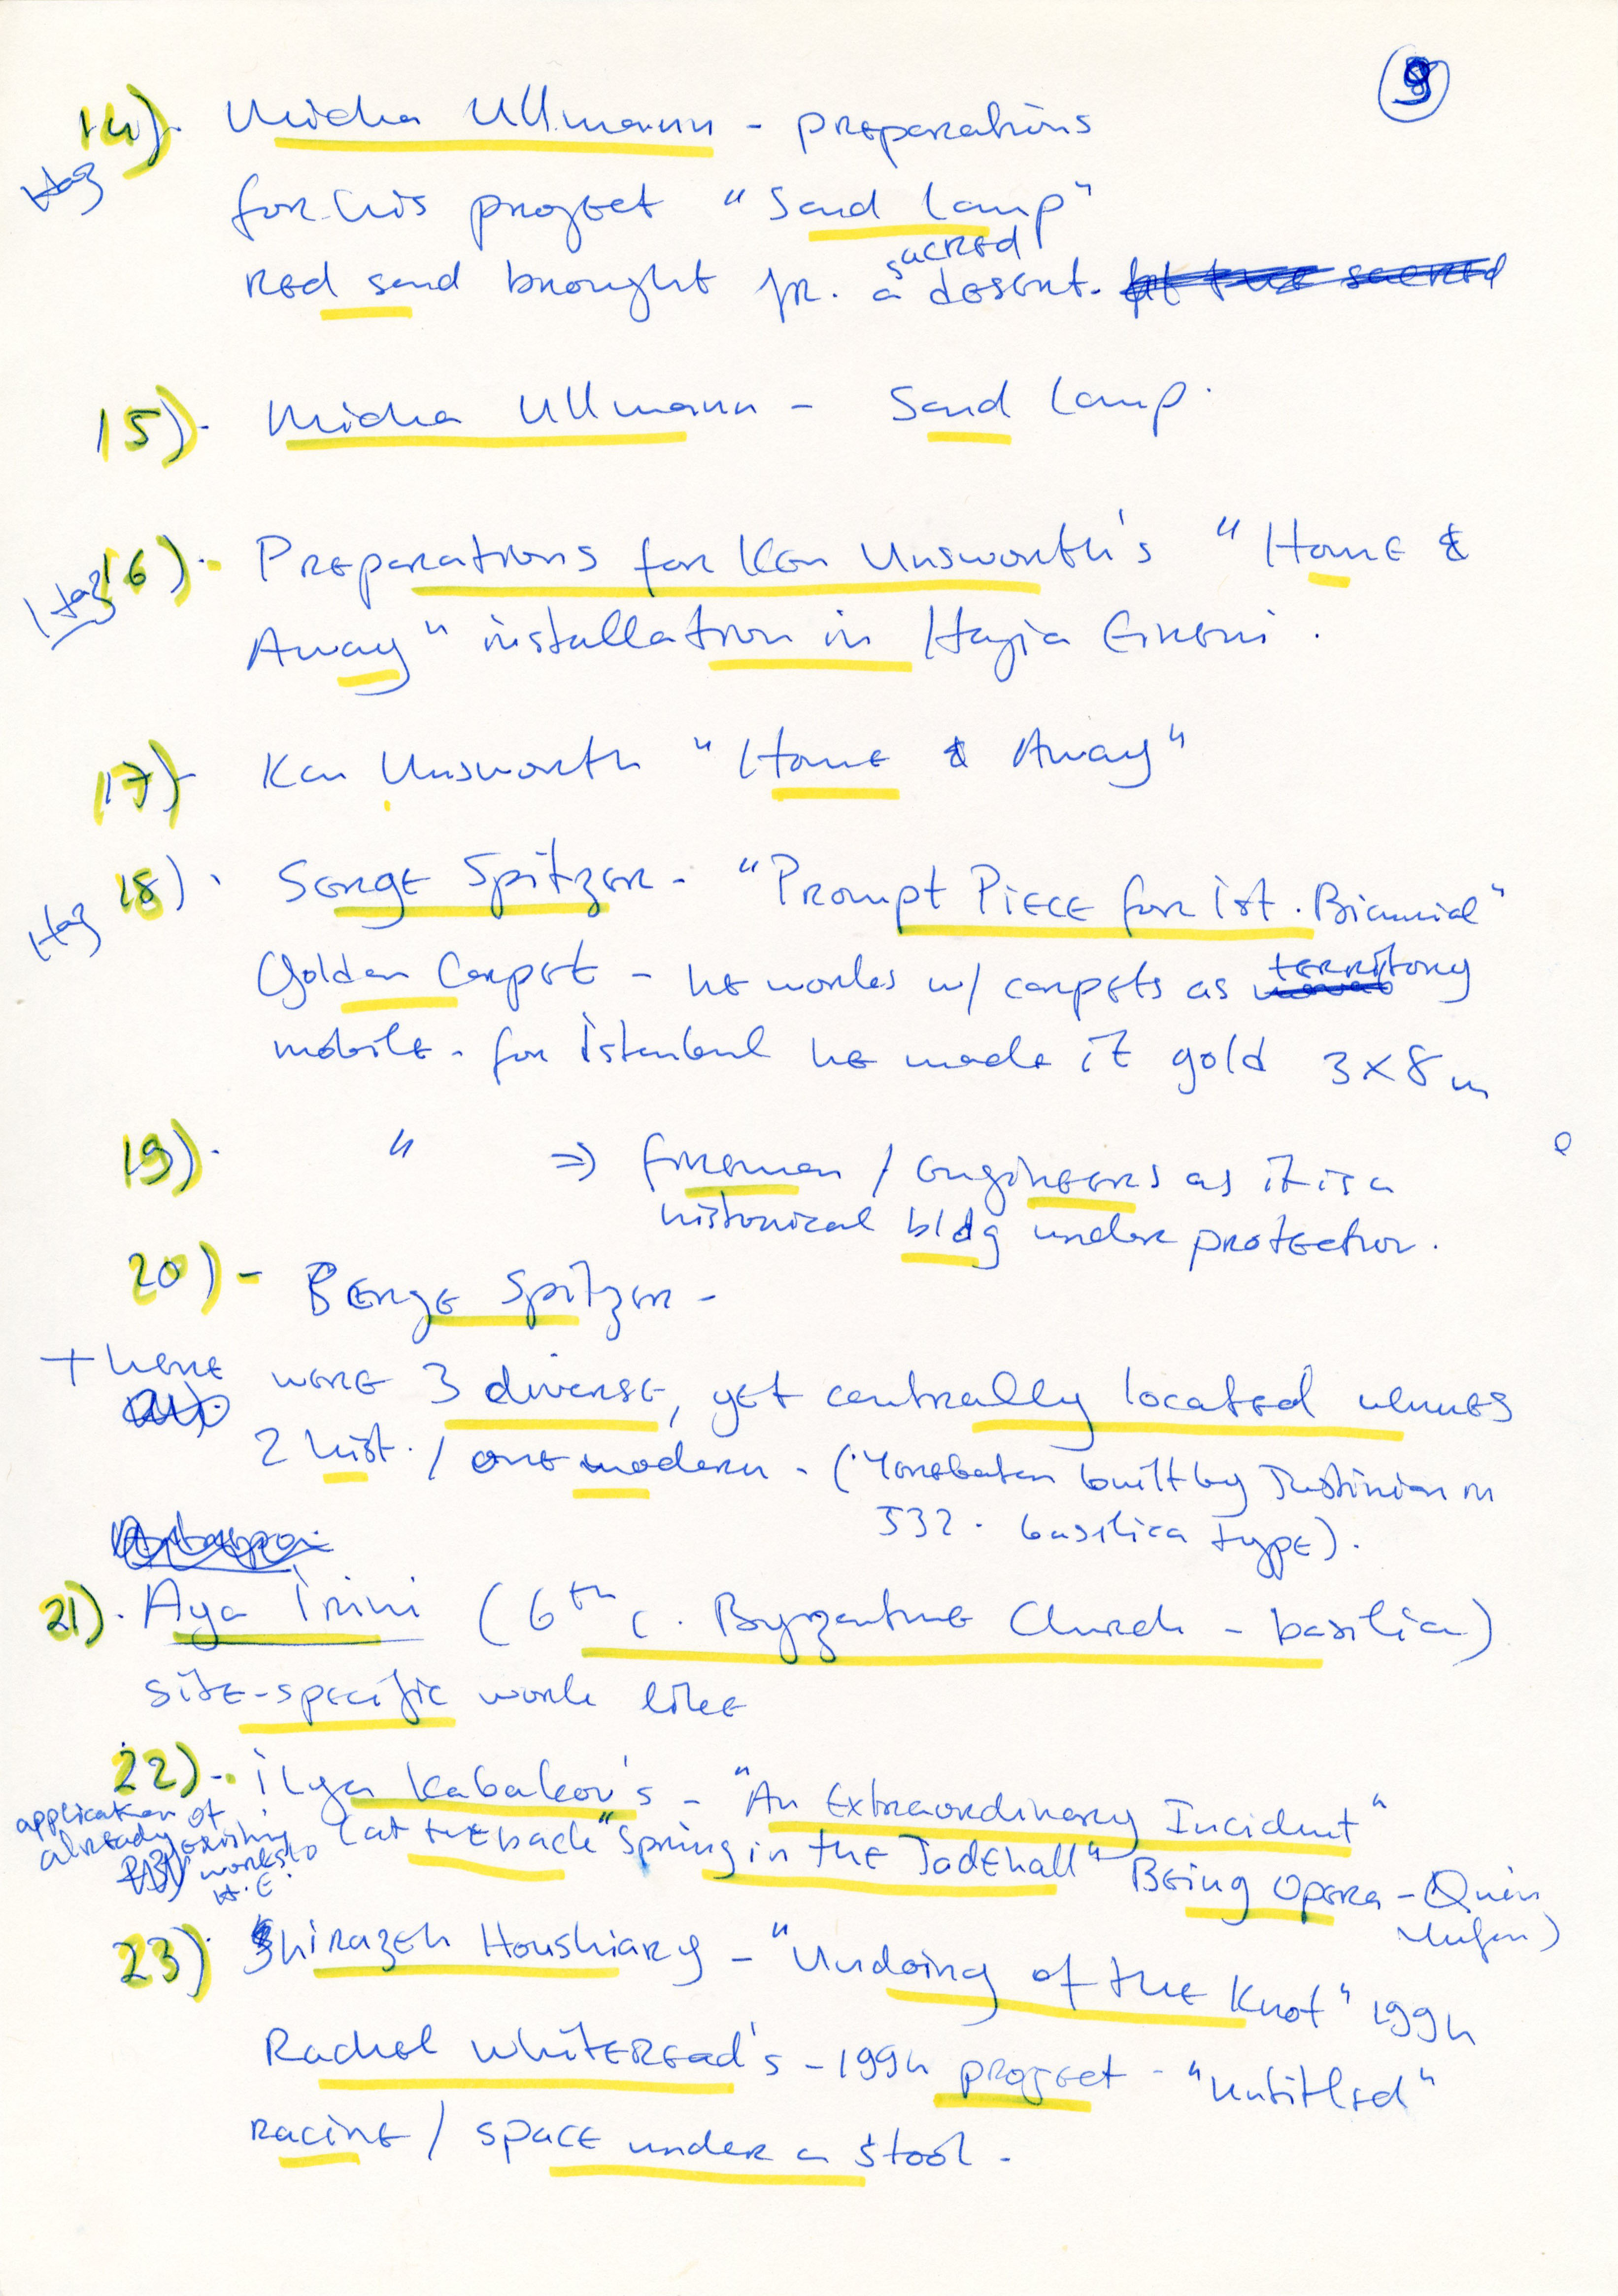 9
14). Micha Ullmann - preparations
Hag
for his project "Sand Lamp"
sacred
red sand brought fr. a desert.
15). Micha Ullmann - Sand Lamp.
16). Preparations for Ken Unsworth's "Home &
Hag
Away" installation in Hagia Eireni.
17) Ken Unsworth "Home & Away"
18). Serge Spitzer - "Prompt Piece for Ist. Biennial"
Hag
Golden Carpet - he works w/ carpets as territory
mobile - for İstanbul he made it gold 3x8m
19). " ⇒ firemen / engineers as it is a
historical bldg under protection.
20) - Serge Spitzer -
There were 3 diverse, yet centrally located venues
2 hist. / one modern - (Yerebatan built by Justinian in
532. basilica type).
21). Aya İrini (6th c. Byzantine Church - basilica)
site-specific work like
22) - İlya Kabakov's - "An Extraordinary Incident"
application of
already existing
works to
H.E.
(at the back "Spring in the Jadehall" Being Opera - Qin
Yufen)
23) Shirazeh Houshiary - "Undoing of the Knot" 1994
Rachel Whiteread's - 1994 project - "Untitled"
racine / space under a stool.